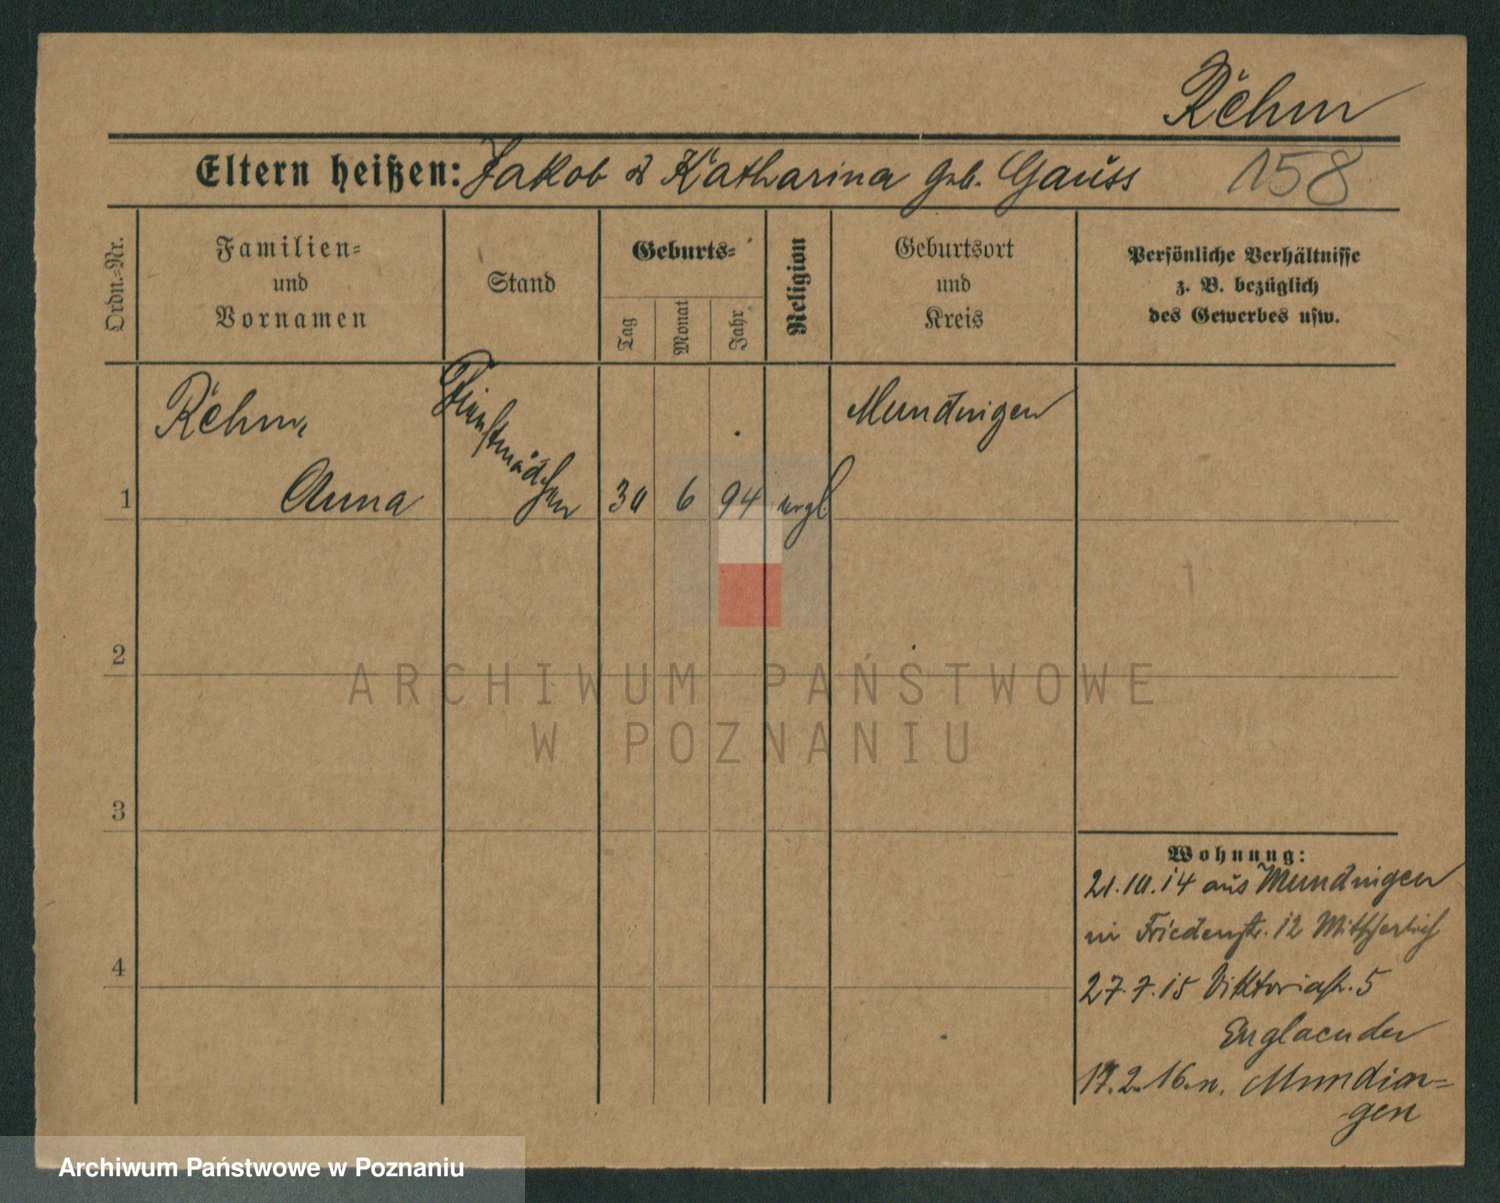 Rehm
Eltern heißen: Jakob & Katharina geb. Gauss 158
Ordn.-Nr.
Familien-
und
Vornamen
Stand
Geburts-
Tag
Monat
Jahr
Religion
Geburtsort
und
Kreis
Persönliche Verhältnisse
z. B. bezüglich
des Gewerbes usw.
1
Rehm,
Anna
Dienstmädchen
30 6 94 evgl.
Mundingen
2
3
4
Wohnung:
21.10.14 aus Mundingen
in Friedenstr. 12 Mitscherlich
27.7.15 Viktoriastr. 5
Englaender
17.2.16 n. Mundin=
gen
ARCHIWUM PAŃSTWOWE
W POZNANIU
Archiwum Państwowe w Poznaniu